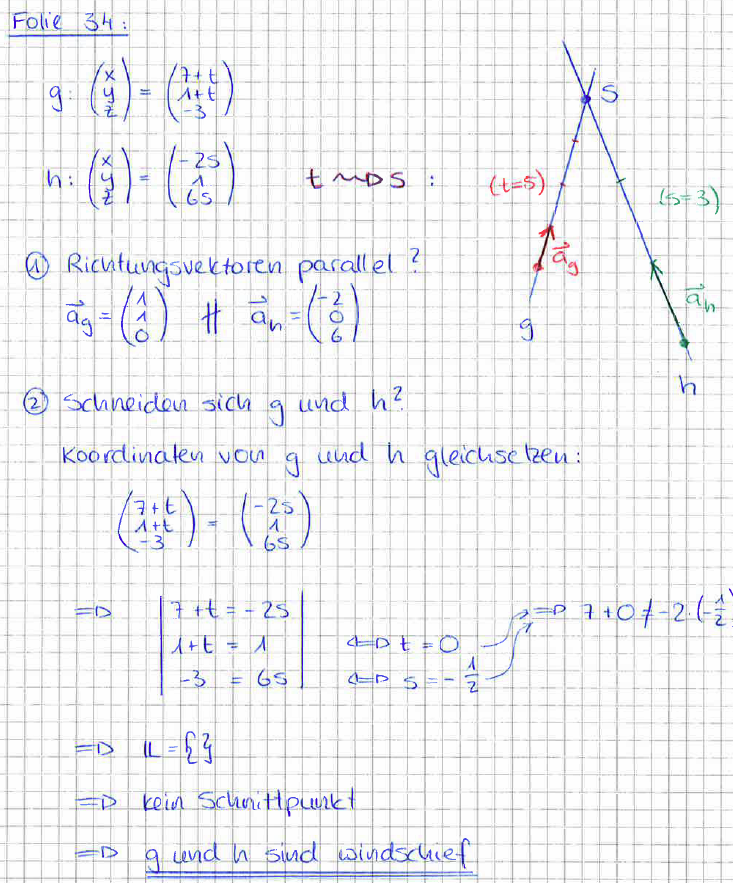 Folie 34:
g: (x y z) = (7+t 1+t -3)
h: (x y z) = (-2s 1 6s)
t ~> s :
S
(t=5)
(s=3)
a⃗g
a⃗h
g
h
① Richtungsvektoren parallel?
a⃗g = (1 1 0) ∦ a⃗h = (-2 0 6)
② Schneiden sich g und h?
Koordinaten von g und h gleichsetzen:
(7+t 1+t -3) = (-2s 1 6s)
=> | 7+t = -2s | => 7+0 ≠ -2·(-1/2)
| 1+t = 1 | <=> t = 0
| -3 = 6s | <=> s = -1/2
=> 𝕃 = {}
=> kein Schnittpunkt
=> g und h sind windschief